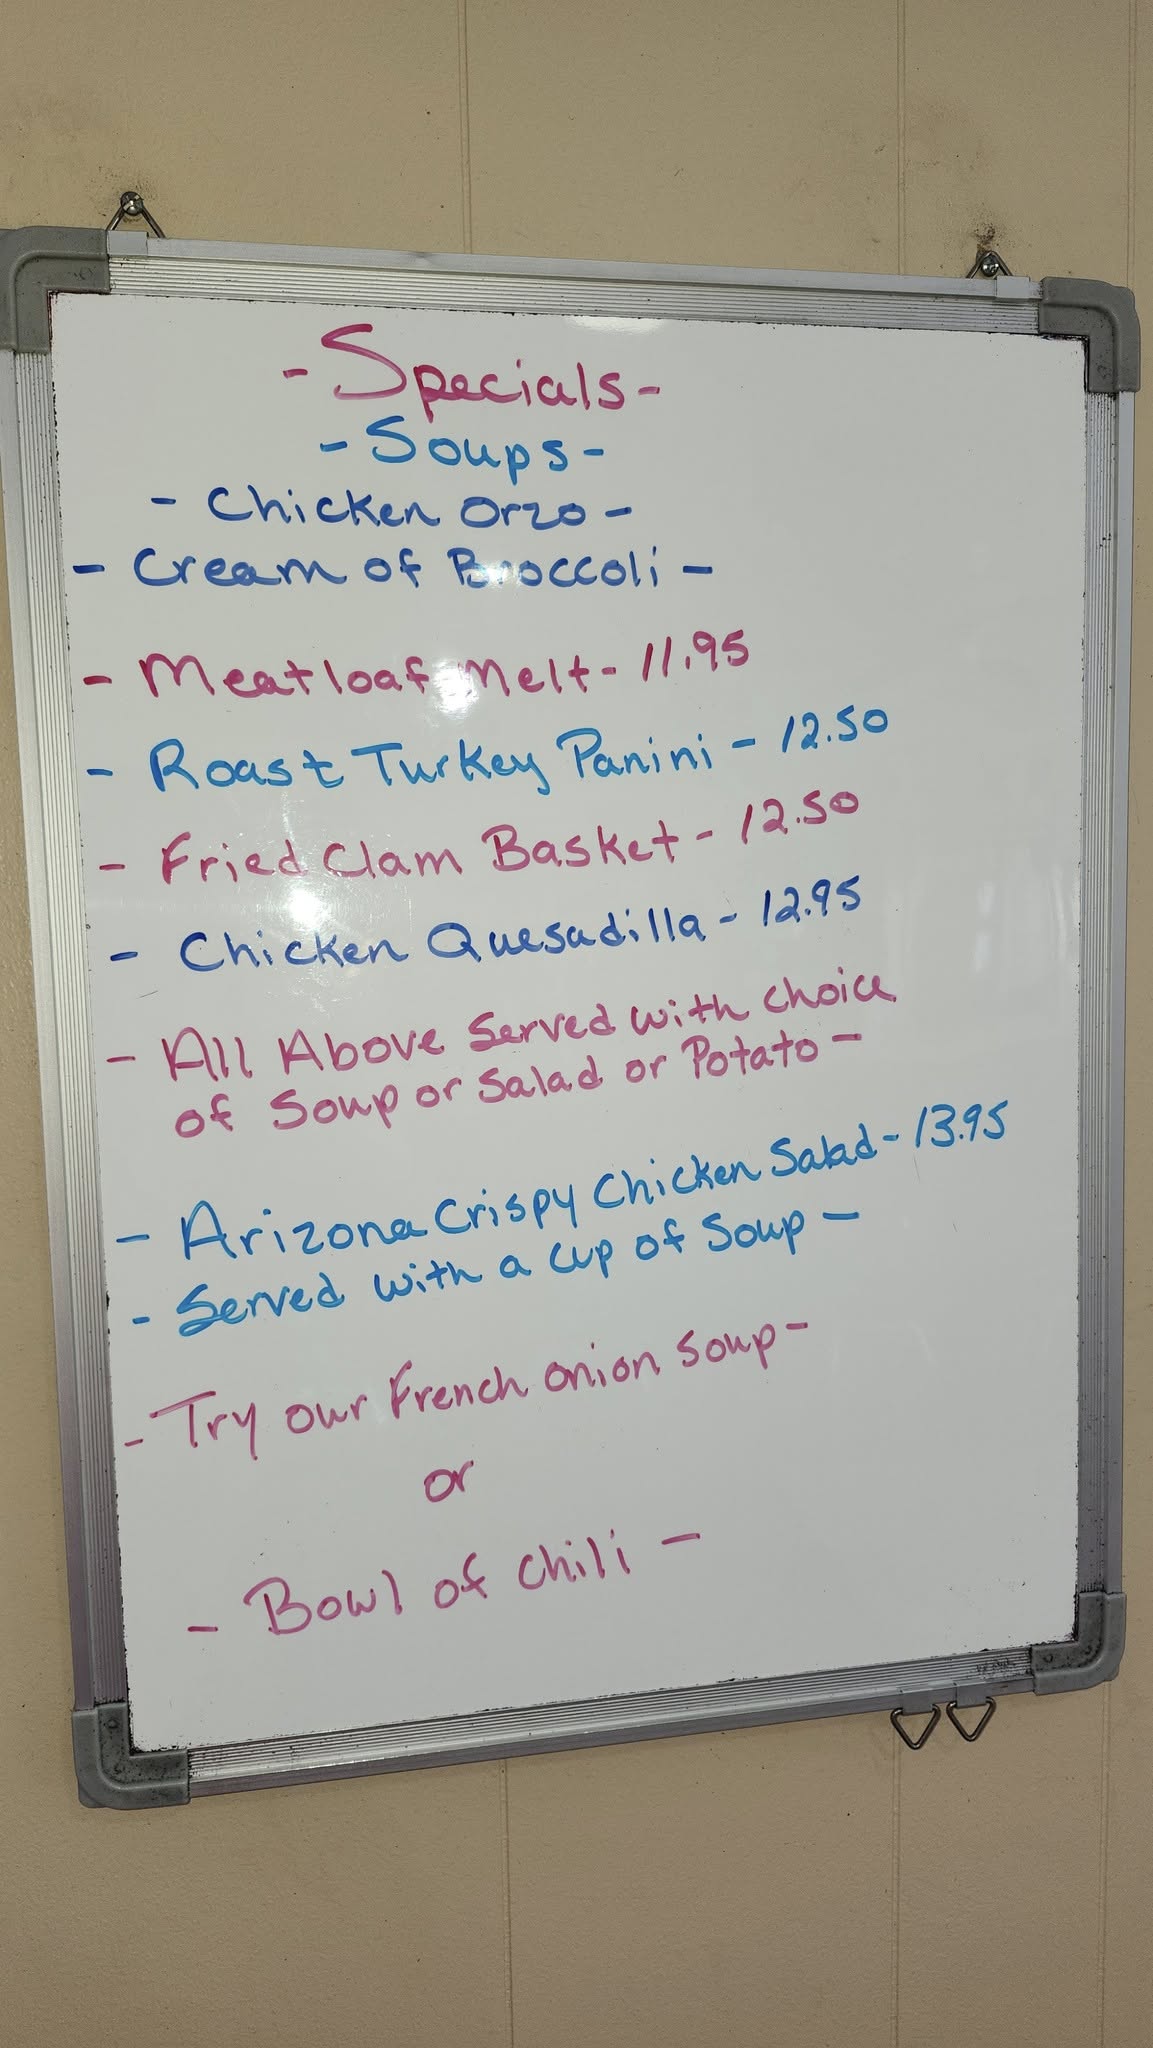 - Specials -
- Soups -
- Chicken Orzo -
- Cream of Broccoli -
- Meatloaf Melt - 11.95
- Roast Turkey Panini - 12.50
- Fried Clam Basket - 12.50
- Chicken Quesadilla - 12.95
- All Above Served with choice
of Soup or Salad or Potato -
- Arizona Crispy Chicken Salad - 13.95
- Served with a cup of Soup -
- Try our French onion soup -
or
- Bowl of chili -